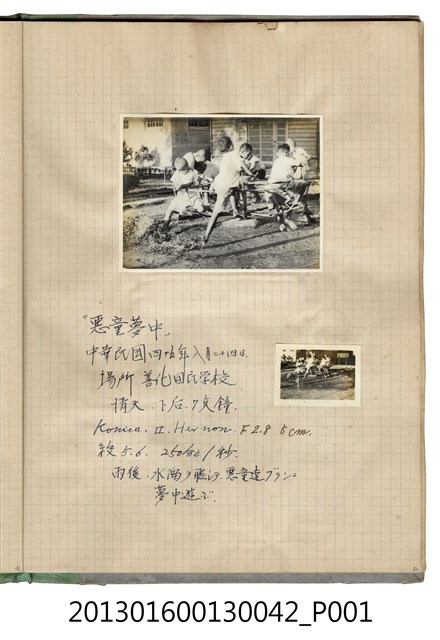 "惡童夢中"
中華民国四十五年八月二十四日.
場所 善化国民学校
情天. 下后. 7点鐘.
Konica. II. Hexanon. F 2.8 5cm.
絞 5.6. 250分之1秒.
雨後. 水溜り 惡童達ブランコ
夢中遊び.
201301600130042_P001